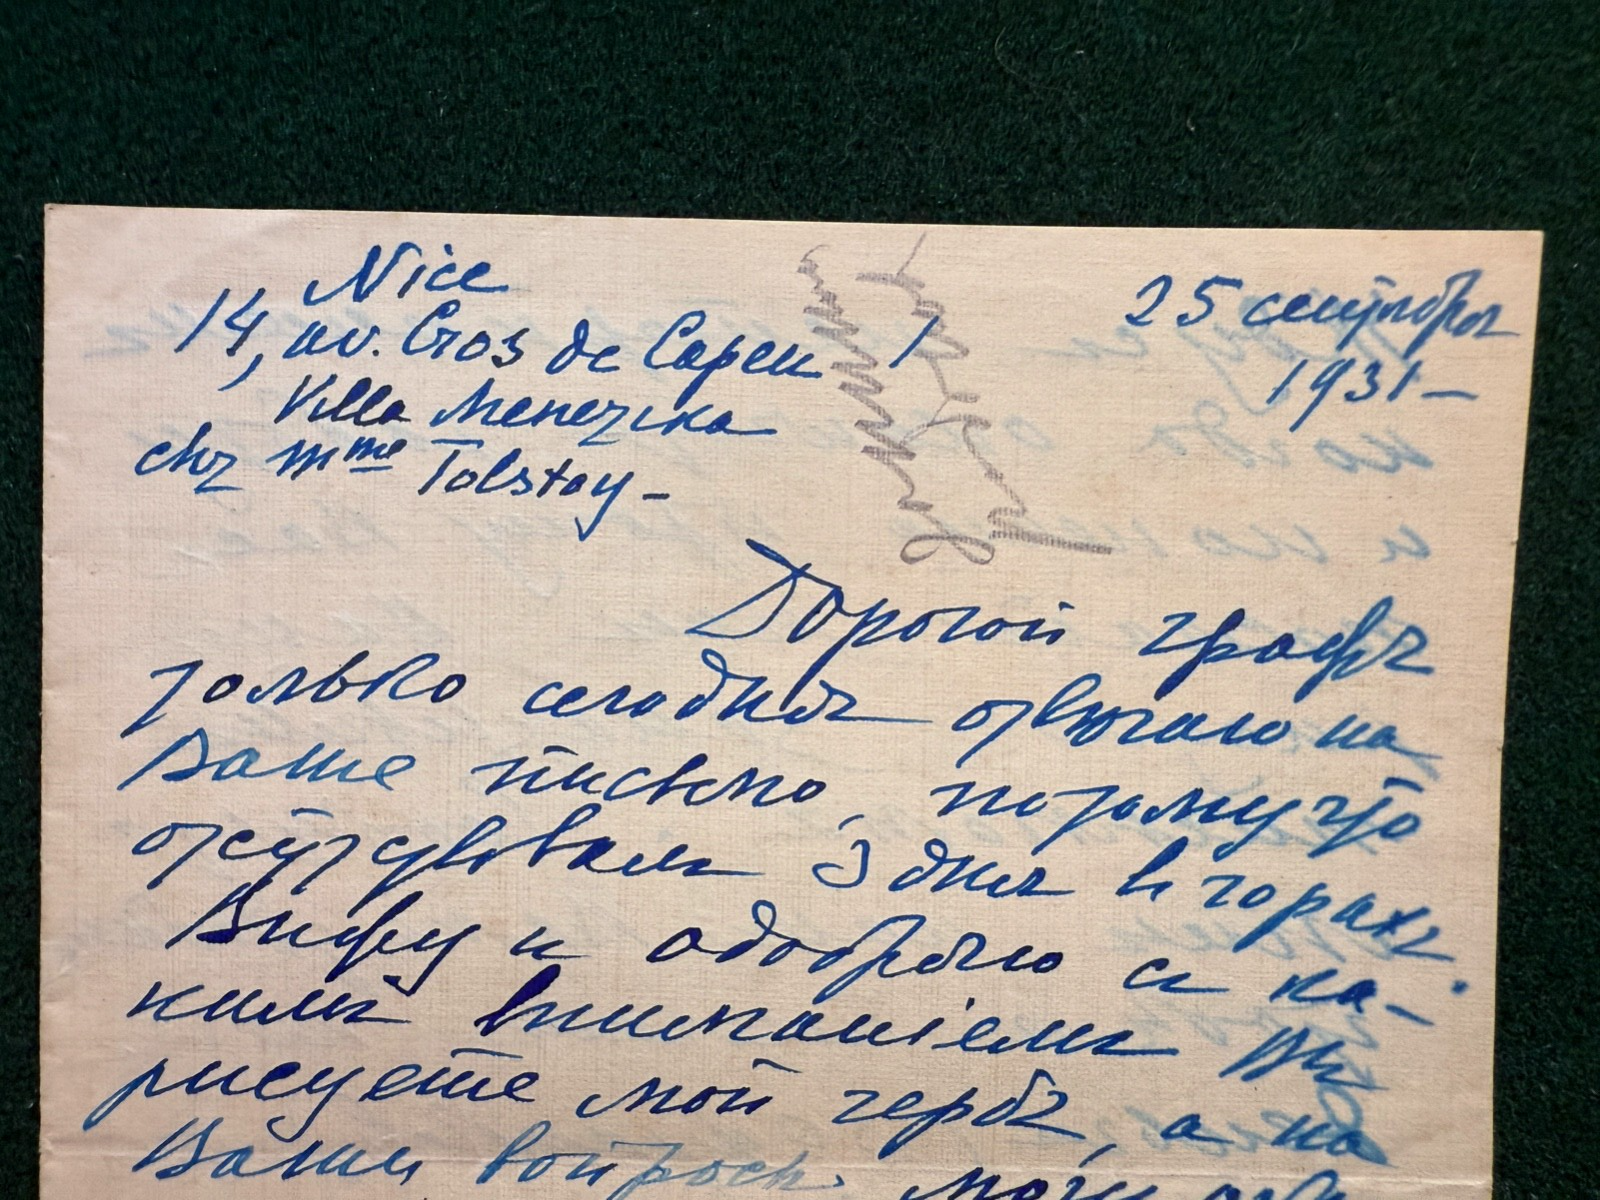 Nice
14, av. Cros de Capeu
Villa
chez Mme Tolstoy –
25 сентября
1931 –
Дорогой графъ
только сегодня отвѣчаю на
Ваше письмо, потому что
отсутствовалъ 3 дня въ горахъ.
Вижу и одобряю съ ка-
кимъ вниманіемъ Вы
рисуете мой гербъ, а на
Вашъ вопросъ